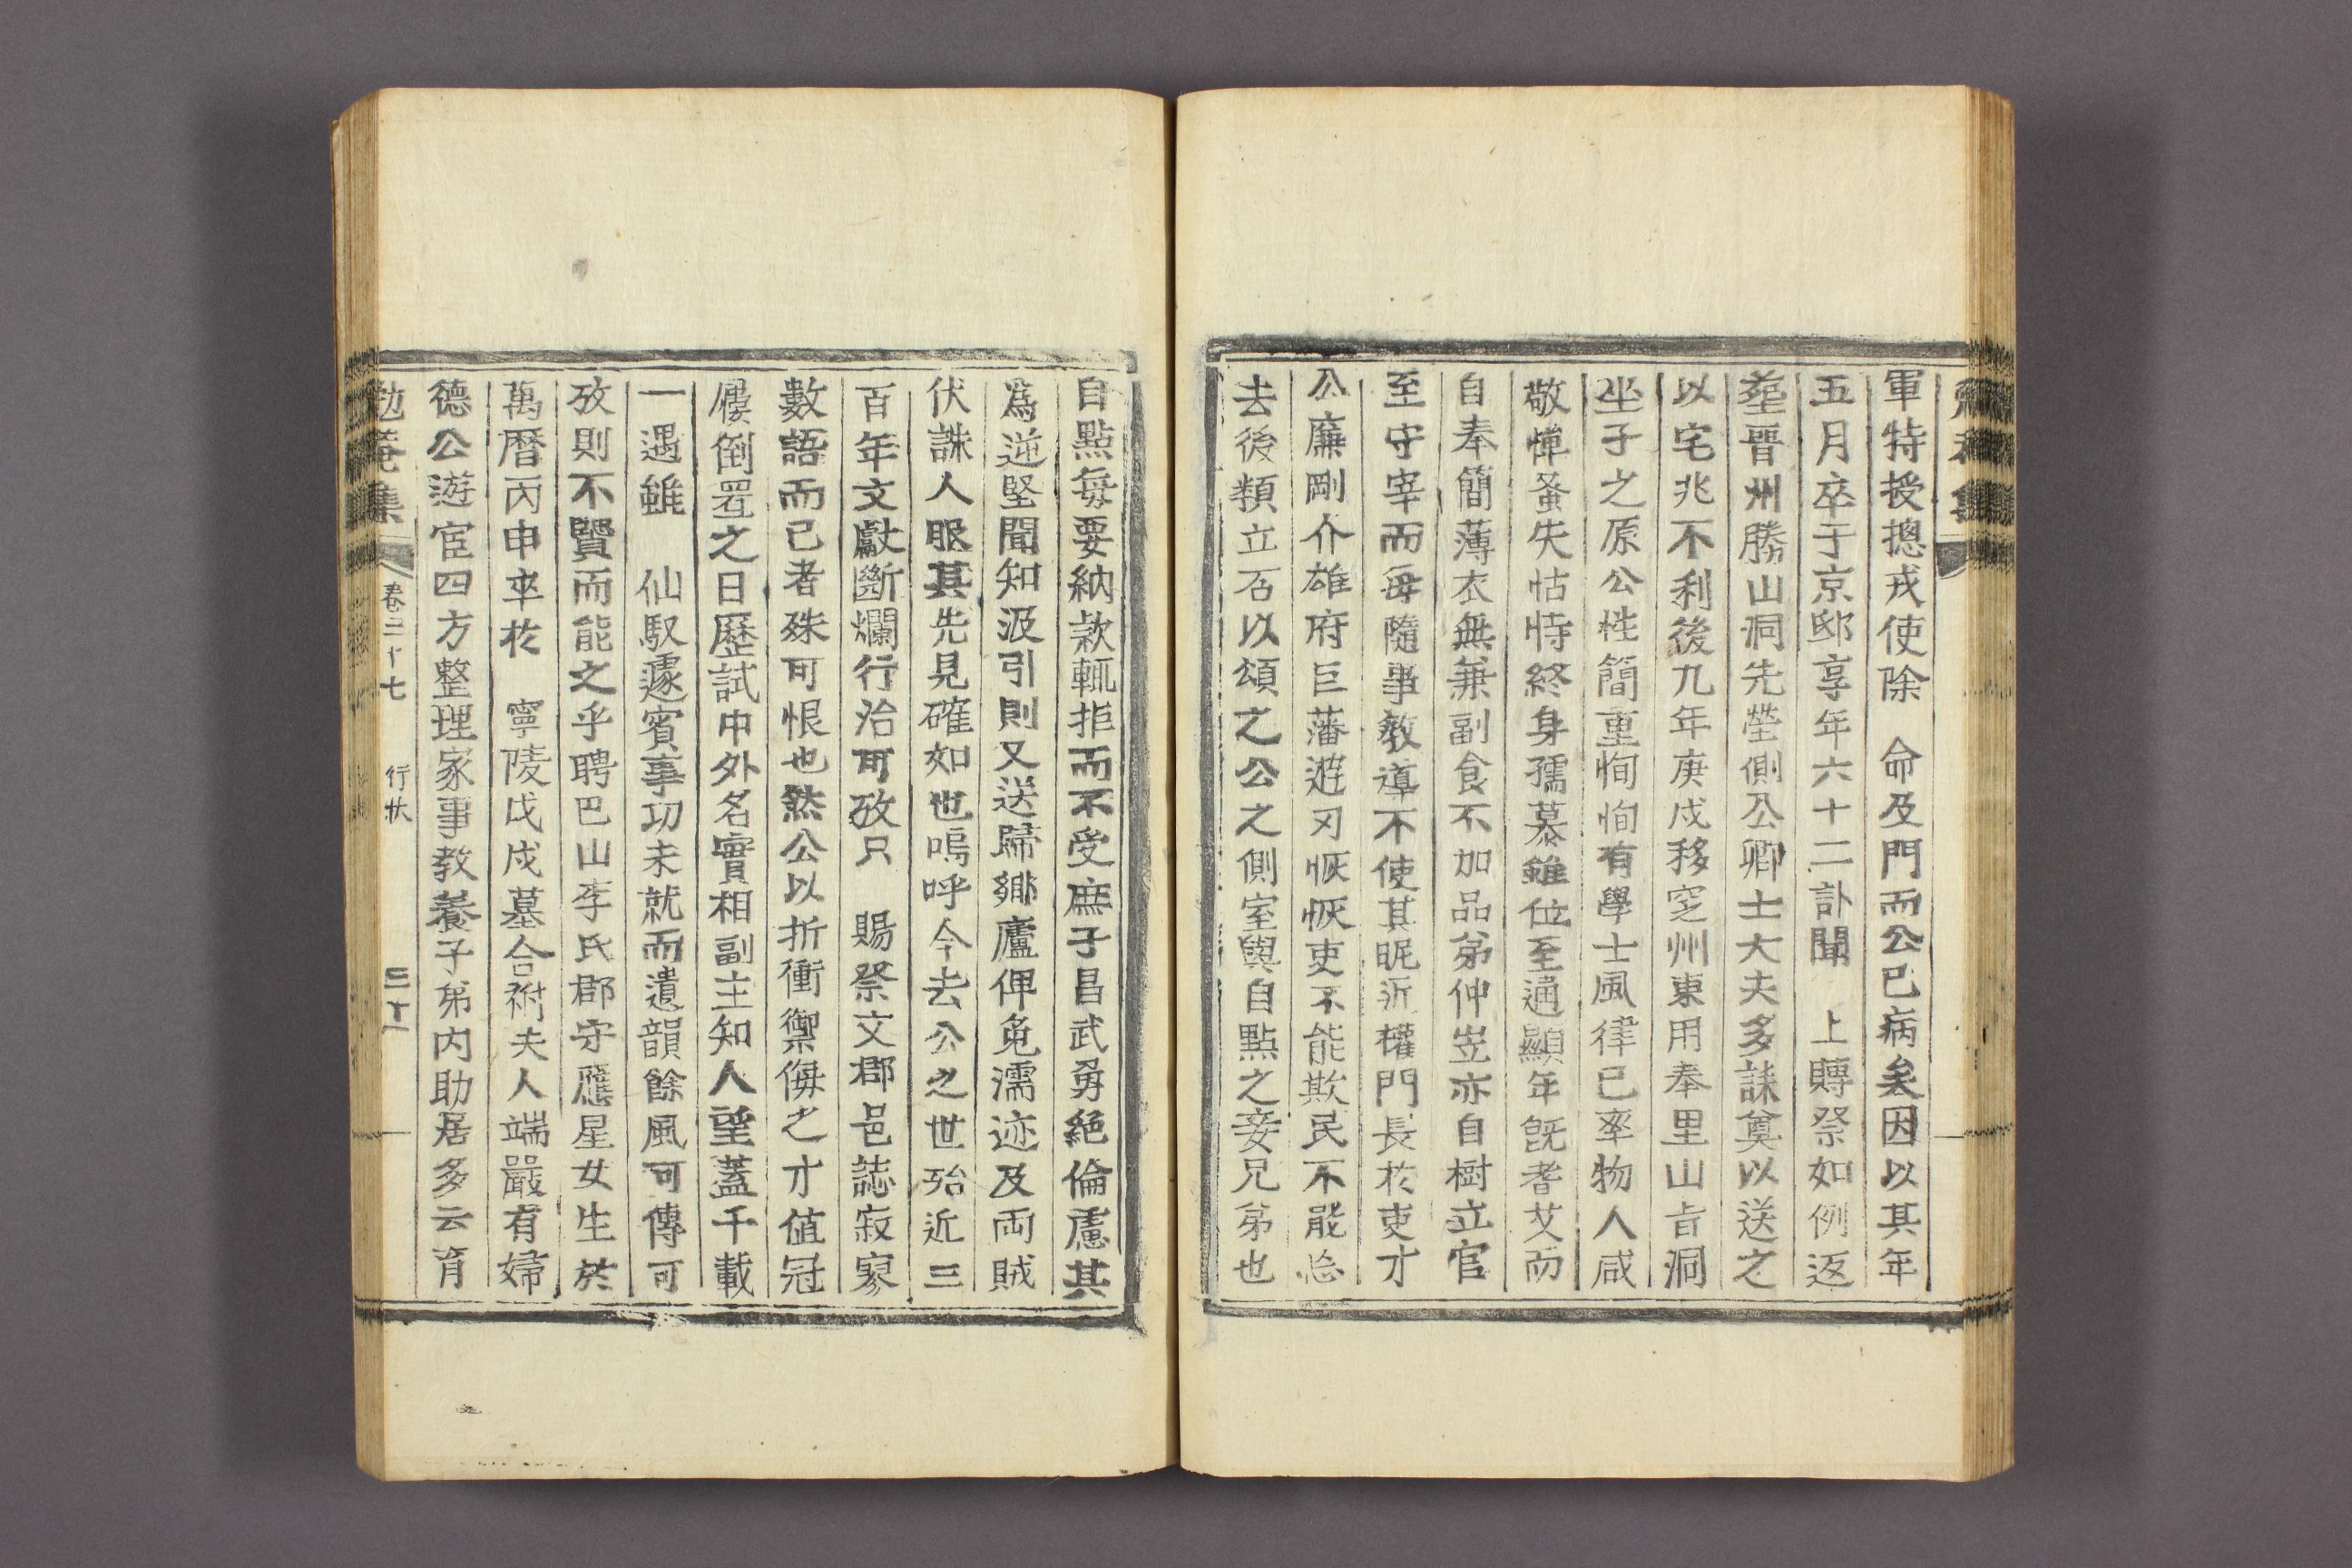 軍特授摠戎使除 命及門而公已病矣因以其年
五月卒于京邸享年六十二訃聞 上賻祭如例返
塟晋州勝山洞先塋側公卿士大夫多誄奠以送之
以宅兆不利後九年庚戌移窆州東用奉里山旨洞
坐子之原公性簡重恂恂有學士風律已率物人咸
敬憚蚤失怙恃終身孺慕雖位至通顯年旣耆艾而
自奉簡薄衣無兼副食不加品弟仲岦亦自樹立官
至守宰而每隨事教導不使其昵近權門長於吏才
公廉剛介雄府巨藩遊刃恢恢吏不能欺民不能忘
去後類立石以頌之公之側室與自點之妾兄弟也
自點每要納欵輒拒而不受庶子昌武勇絶倫慮其
爲逆堅聞知汲引則又送歸鄕廬俾免濡迹及両賊
伏誅人服其先見確如也嗚呼今去公之世殆近三
百年文獻斷爛行治可攷只 賜祭文郡邑誌寂寥
數語而已者殊可恨也然公以折衝禦侮之才値冠
屨倒置之日歷試中外名實相副主知人望蓋千載
一遇雖 仙馭遽賓事功未就而遺韻餘風可傳可
攷則不賢而能之乎聘巴山李氏郡守應星女生於
萬曆丙申卒於 寧陵戊戌墓合祔夫人端嚴有婦
德公遊宦四方整理家事教養子弟內助居多云育
勉菴集 卷二十七 行狀 三十